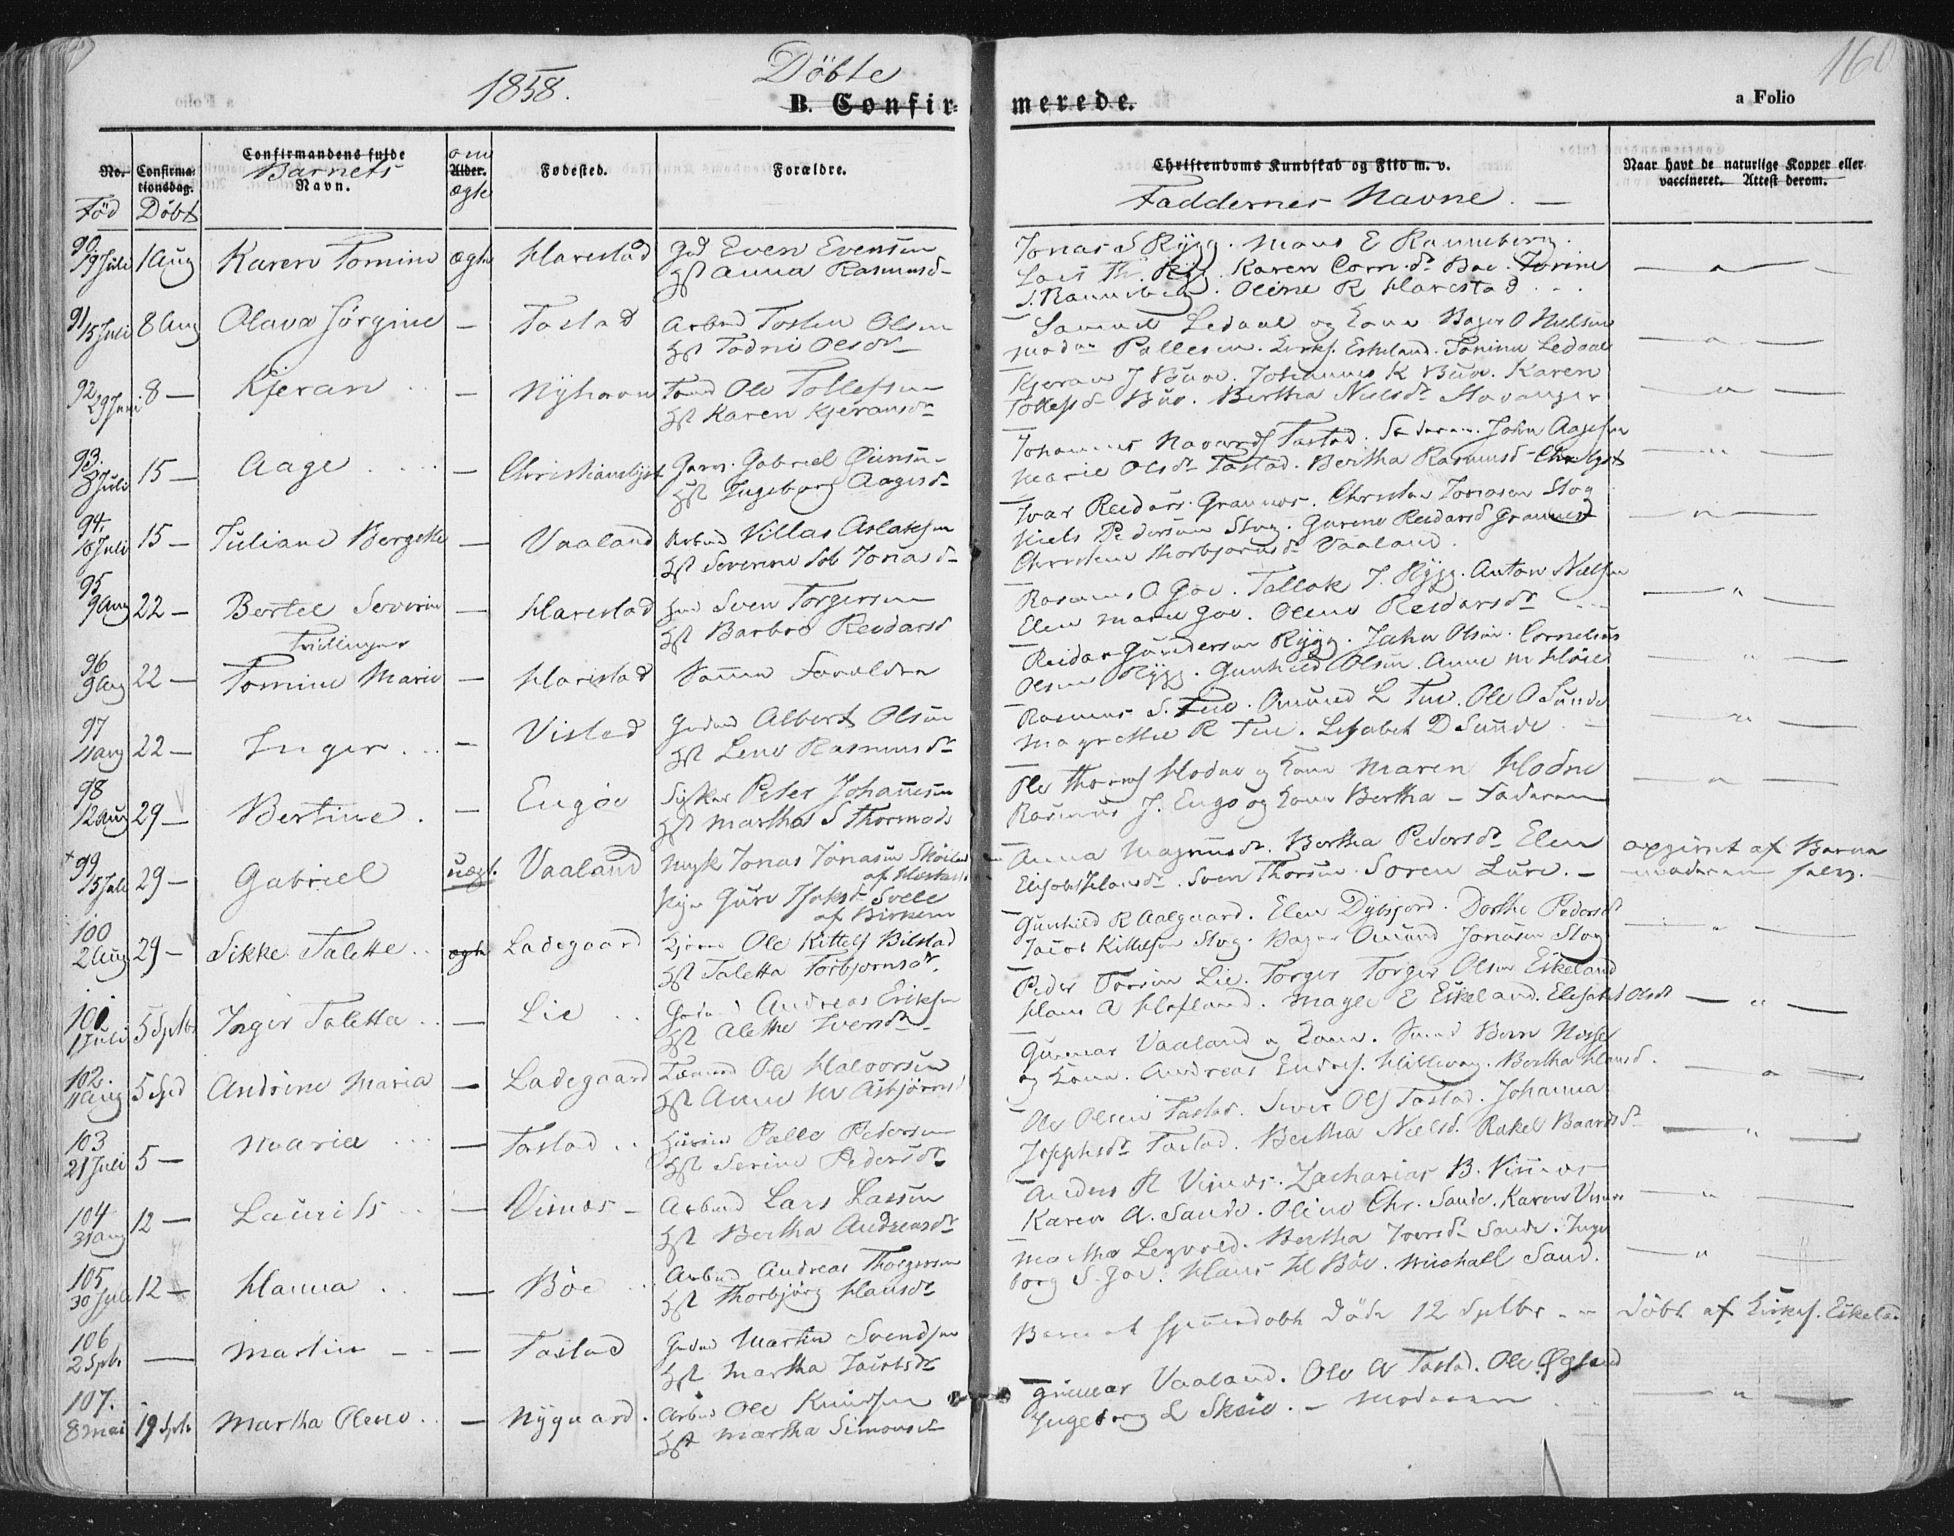 1858.
Döbte
B. Confirmerede.
160
a Folio
No.
Confirmationsdag.
Confirmandens fulde Navn.
Barnets
om
Alder.
ægte
Fødested.
Forældre.
Christendoms Kundskab og Flid m. v.
Naar havt de naturlige Kopper eller vaccineret. Attest derom.
Föd
Döbt
Faddernes Navne. —
90
19 Juli 1 Aug Karen Tomine ægte Harestad Gd Even Evensen
Hst Anna Rasmusd
Jonas S Rygg. Mons E Ranneberg.
Lars Th. Rygg. Karen Corn.dr Boe. Torine
S. Ranneberg. Oline R Harestad
91
15 Juli 8 Aug Olava Jörgine — Tastad Arbmd Tosten Olsen
Hst Todni Olsdr
Samuel Ledaal og Kone Bager O Nielsen
Madm Pallesen. Kirks. Eskeland. Tomine Ledaal
92
29 Juni 8 — Kjeran — Nyhavn Tmd Ole Tollefsen
Hst Karen Kjeransdr
Kjeran J Bue. Johannes K Bue. Karen
Tollefsdr Bue. Bertha Nielsdr Stavanger
93.
8 Juli 15 — Aage — Christianslyst Garv. Gabriel
Hst Ingeborg Aagesdr
Johannes Tastad. Faderen. John Aagesen
Marie Olsdr Tastad. Bertha Rasmusd Chrlyst
94.
18 Juli 15 — Juliane Bergette — Vaaland Arbmd Villas Aslaksen
Hst Severine Sob Jonasdr
Ivar Reidars. Grannes. Christen Jonasen Stog
Niels Pedersen Stog. Gurine Reidarsd Grannes
Thorbjørnsdr Vaaland.
95
9 Aug 22 — Bertel Severin — Harestad Gmd Sven Torgersen
Hst Barbro Reidarsd
Tvillinger
Rasmus O Goe. Tallak J. Rygg. Anton Nielsen
Elen Marie Goe. Olene Reidarsdr
96
9 Aug 22 — Tomine Marie — Harestad Samme Forældre
Reidar Gundersen Rygg. John Olsen. Cornelius
Olsen Rygg. Gunhild Olsen. Anne M Höie
97
11 Aug 22 — Inger — Visted Gmd Albert Olsen
Hst Lene Rasmusdr
Rasmus S. Tue. Omund L Tue. Ole O Sunde
Magrethe R Tue. Lisabet D Sunde
98
12 Aug 29 — Bertine. — Engöe Fisker Peter Johannesen
Hst Martha S Thormods
Ole Hodne og Kone Maren Hodne
Rasmus J. Engö og Kone Bertha — Faderen
+ 99
15 Juli 29 — Gabriel uægt. Vaaland Ungk Jonas Jonasen
Pige Guri Svele
af Birkem
Anna Magnusdr. Bertha Pedersdr Elen
Elisabet Hansdr. Sven Thorsen. Soren Lure. —
opgivet af Barne
moderen selv. —
100
2 Aug 29 — Sikke Talette ægte Ladegaard Ole Kittels Bilstad
Hst Taletta Torbjornsdr.
Gunhild R Aalgaard. Elen Dybsjord. Dorthe Pedersdr
Jacob Kittelsen Stog. Bager Omund Jonasen Stog
101
1 Juli 5 Sptbr Inger Taletta — Lie Andreas Eriksen
Hst Alethe Iversdr
Peder Lie. Torger Torger Olsen Eskeland
Hans A Hafland. E Eskeland. Elisabet Olsdr
102.
11 Aug 5 Sept Andrine Maria — Ladegaard Tømmd Ole Halvorsen
Hst Anne M Asbjørnsd
Gunnar Vaaland og Kone.
og Kone. Andreas Endres. Hillevaag. Bertha Hansd.
103
21 Juli 5 — Maria — Tastad Palle Pedersen
Hst Serine Pedersdr
Ole Olsen Tastad. Siver Ols Tastad. Johanna
Josephsdr Tastad. Bertha Nielsd. Rakel Baardsdr
104
31 Aug 12 — Laurits — Visnæs — Arbmd Lars Larsen
Hst Bertha Andreasdr
Anders R Visnæs. Zacharias B. Visnæs
Karen A. Sande. Oline Chr. Sande. Karen Visnes
105
30 Juli 12 — Hanna — Böe Arbmd Andreas Thorgersen
Hst Thorbjørg Hansdr
Martha Legvold. Bertha Iversdr Sande. Inge
borg S. Joe. Hans H Böe. Michall Sand.
106
2 Sptbr — Martin — Tastad Martin Svendsen
Hst Martha
Barnet hjemmedöbt Döde 12 Sptbr. — Döbt af Kirkes. Eskeland
107.
8 Mai 19 Sptb Martha Olene — Nygaard. Arbmd Ole Knudsen
Hst Martha Simonsdr
Gunnar Vaaland. Ole A Tastad. Ole
Ingeborg L Skeie. — Moderen